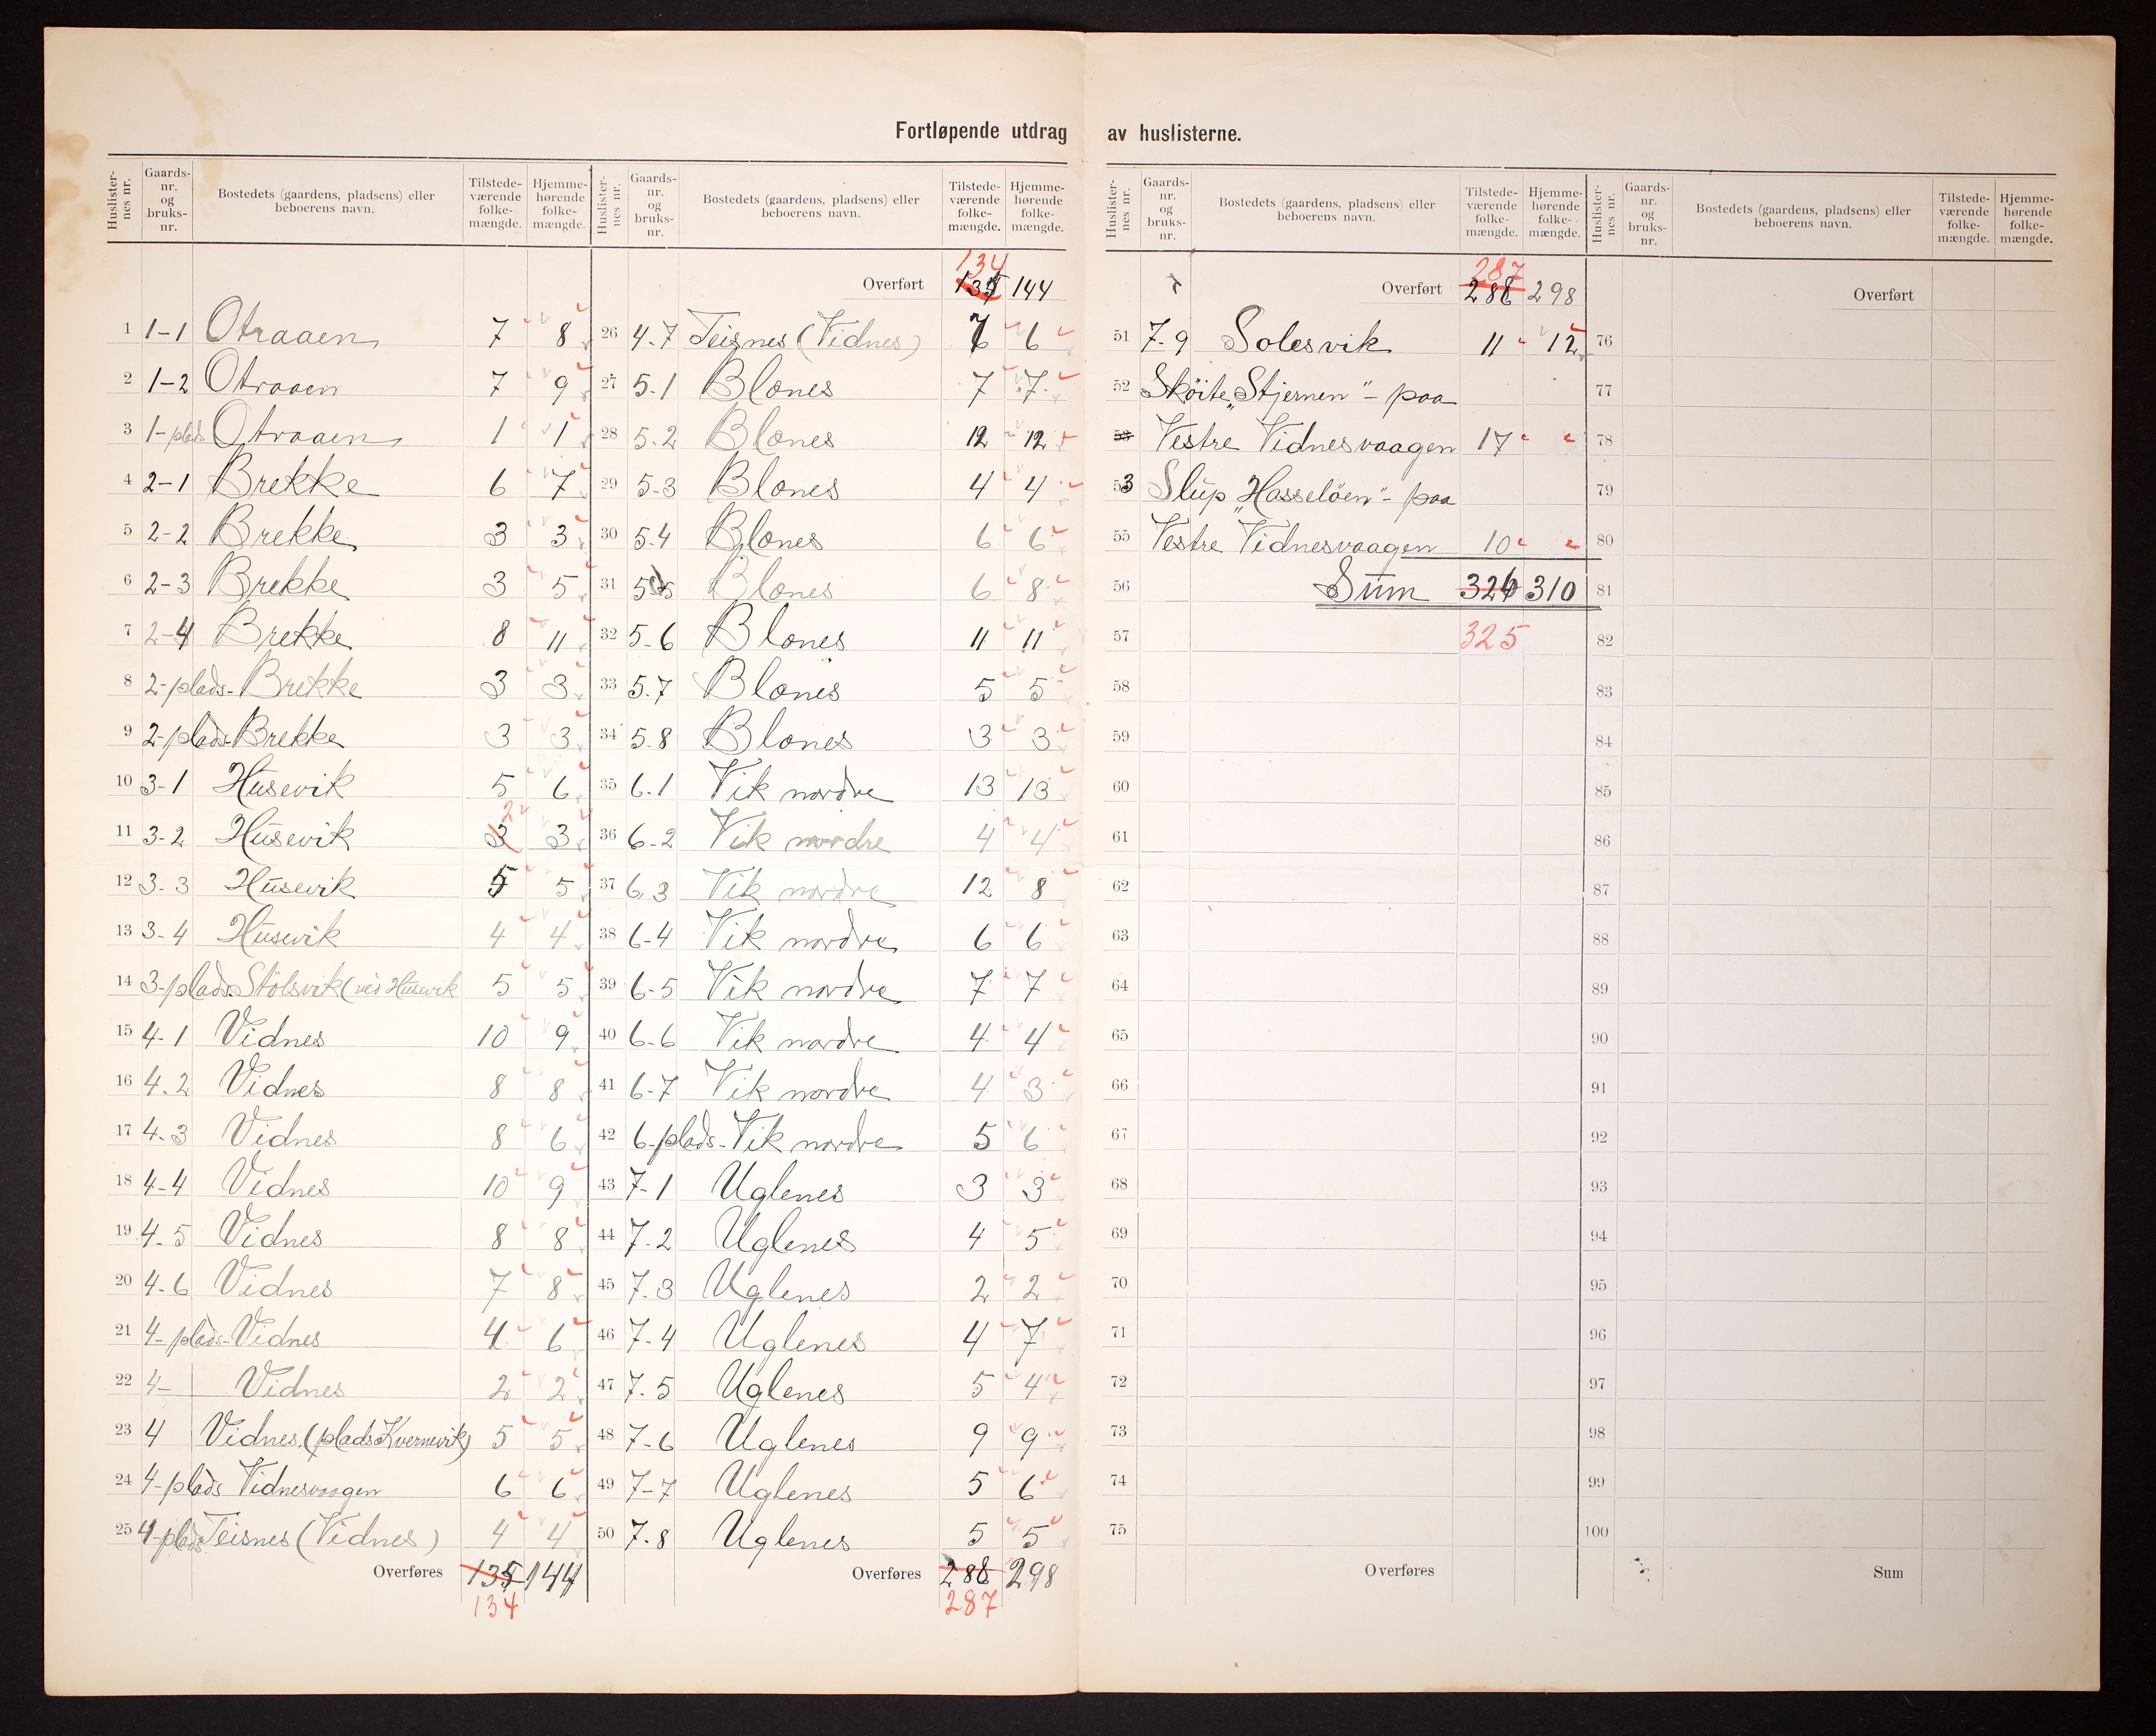 Fortløpende utdrag av huslisterne.
Huslister-nes nr. Gaards-nr. og bruks-nr. Bostedets (gaardens, pladsens) eller beboerens navn. Tilstede-værende folke-mængde. Hjemme-hørende folke-mængde.
1 1-1 Otraaen 7 8
2 1-2 Otraaen 7 9
3 1-plads Otraaen 1 1
4 2-1 Brekke 6 7
5 2-2 Brekke 3 3
6 2-3 Brekke 3 5
7 2-4 Brekke 8 11
8 2-plads- Brekke 3 3
9 2-plads- Brekke 3 3
10 3-1 Husevik 5 6
11 3-2 Husevik 3 2 3
12 3-3 Husevik 5 5
13 3-4 Husevik 4 4
14 3-plads. Stölsvik (ved Husevik 5 5
15 4-1 Vidnes 10 9
16 4.2 Vidnes 8 8
17 4.3 Vidnes 8 6
18 4-4 Vidnes 10 9
19 4.5 Vidnes 8 8
20 4.6 Vidnes 7 8
21 4-plads-Vidnes 4 6
22 4- Vidnes 2 2
23 4 Vidnes, (plads Kvernevik) 5 5
24 4-plads Vidnesvaagen 6 6
25 4-plads Teisnes (Vidnes) 4 4
Overføres 135 144
134
Huslister-nes nr. Gaards-nr. og bruks-nr. Bostedets (gaardens, pladsens) eller beboerens navn. Tilstede-værende folke-mængde. Hjemme-hørende folke-mængde.
134
Overført 135 144
26 4.7 Teisnes (Vidnes) 7 6
27 5.1 Blanes 7 7
28 5.2 Blanes 12 12
29 5-3 Blanes 4 4
30 5.4 Blanes 6 6
31 5.5 Blanes 6 8
32 5-6 Blanes 11 11
33 5.7 Blanes 5 5
34 5.8 Blanes 3 3
35 6.1 Vik nordre 13 13
36 6-2 Vik nordre 4 4
37 6.3 Vik nordre 12 8
38 6-4 Vik nordre 6 6
39 6-5 Vik nordre 7 7
40 6-6 Vik nordre 4 4
41 6-7 Vik nordre 4 3
42 6-plads-Vik nordre 5 6
43 7-1 Uglenes 3 3
44 7.2 Uglenes 4 5
45 7.3 Uglenes 2 2
46 7-4 Uglenes 4 7
47 7.5 Uglenes 5 4
48 7-6 Uglenes 9 9
49 7-7 Uglenes 5 6
50 7.8 Uglenes 5 5
Overføres 288 298
287
Huslister-nes nr. Gaards-nr. og bruks-nr. Bostedets (gaardens, pladsens) eller beboerens navn. Tilstede-værende folke-mængde. Hjemme-hørende folke-mængde.
287
Overført 288 298
51 7-9 Solesvik 11 12
52 Sköite „Stjernen" - paa
53 Vestre Vidnesvaagen 17
53 Slup „Hasselöen" - paa
55 Vestre Vidnesvaagen 10
56 Sum 326 310
57 325
58
59
60
61
62
63
64
65
66
67
68
69
70
71
72
73
74
75
Overføres
Huslister-nes nr. Gaards-nr. og bruks-nr. Bostedets (gaardens, pladsens) eller beboerens navn. Tilstede-værende folke-mængde. Hjemme-hørende folke-mængde.
Overført
76
77
78
79
80
81
82
83
84
85
86
87
88
89
90
91
92
93
94
95
96
97
98
99
100
Sum